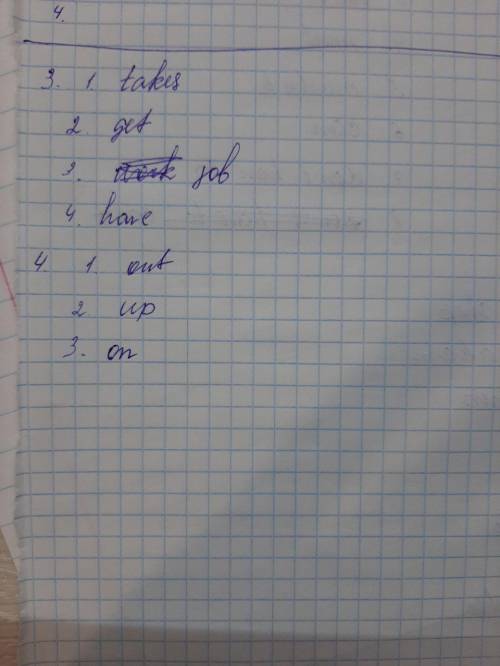 4.
3. 1. takes
2. get
3. work job
4. have
4. 1. out
2 up
3. on